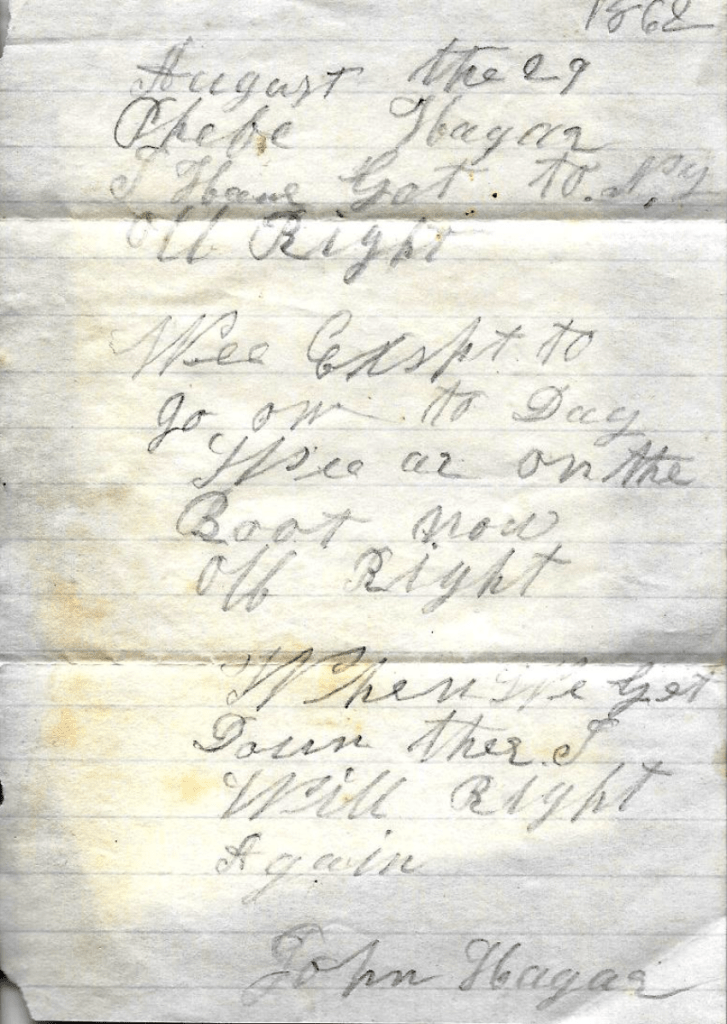 1862
August the 29
Phebe Hagar
I Have Got to N,y
Oll Right
Wee Exspt to
go on to Day
Wee ar on the
Boat now
Oll Right
When We Get
Down ther I
Will Right
Again
John Hagar